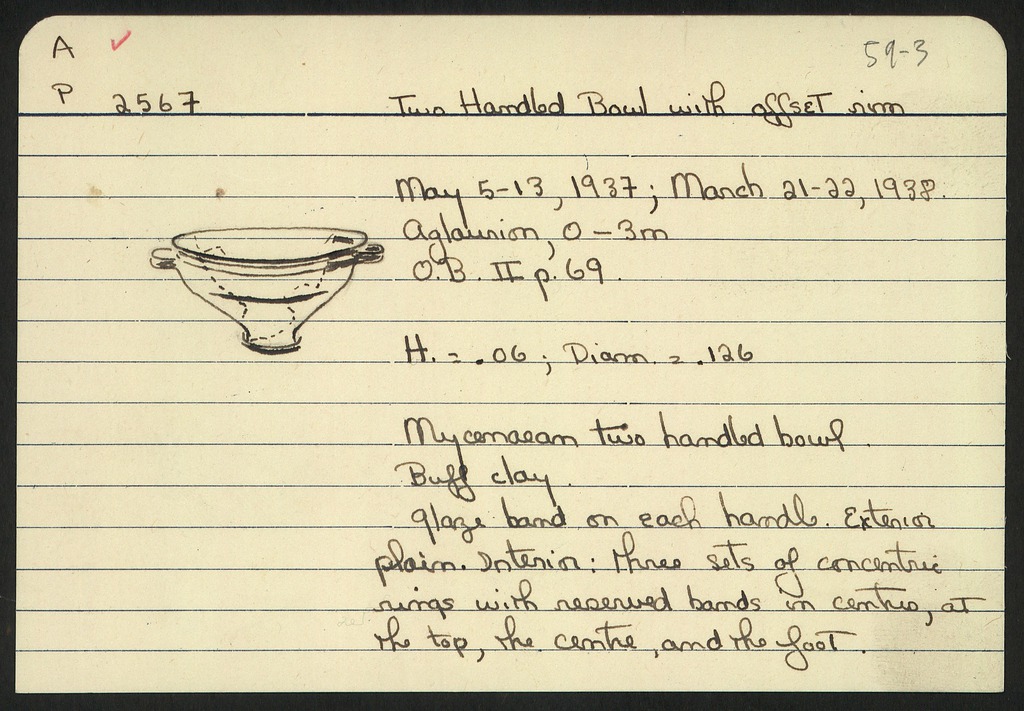 A ✓
59-3
P 2567
Two Handled Bowl with offset rim
May 5-13, 1937; March 21-22, 1938.
Aglaurion, 0-3m
O.B. II p. 69.
H. = .06; Diam. = .126
Mycenaean two handled bowl.
Buff clay.
Glaze band on each handle. Exterior
plain. Interior: three sets of concentric
rings with reserved bands in centre, at
the top, the centre, and the foot.